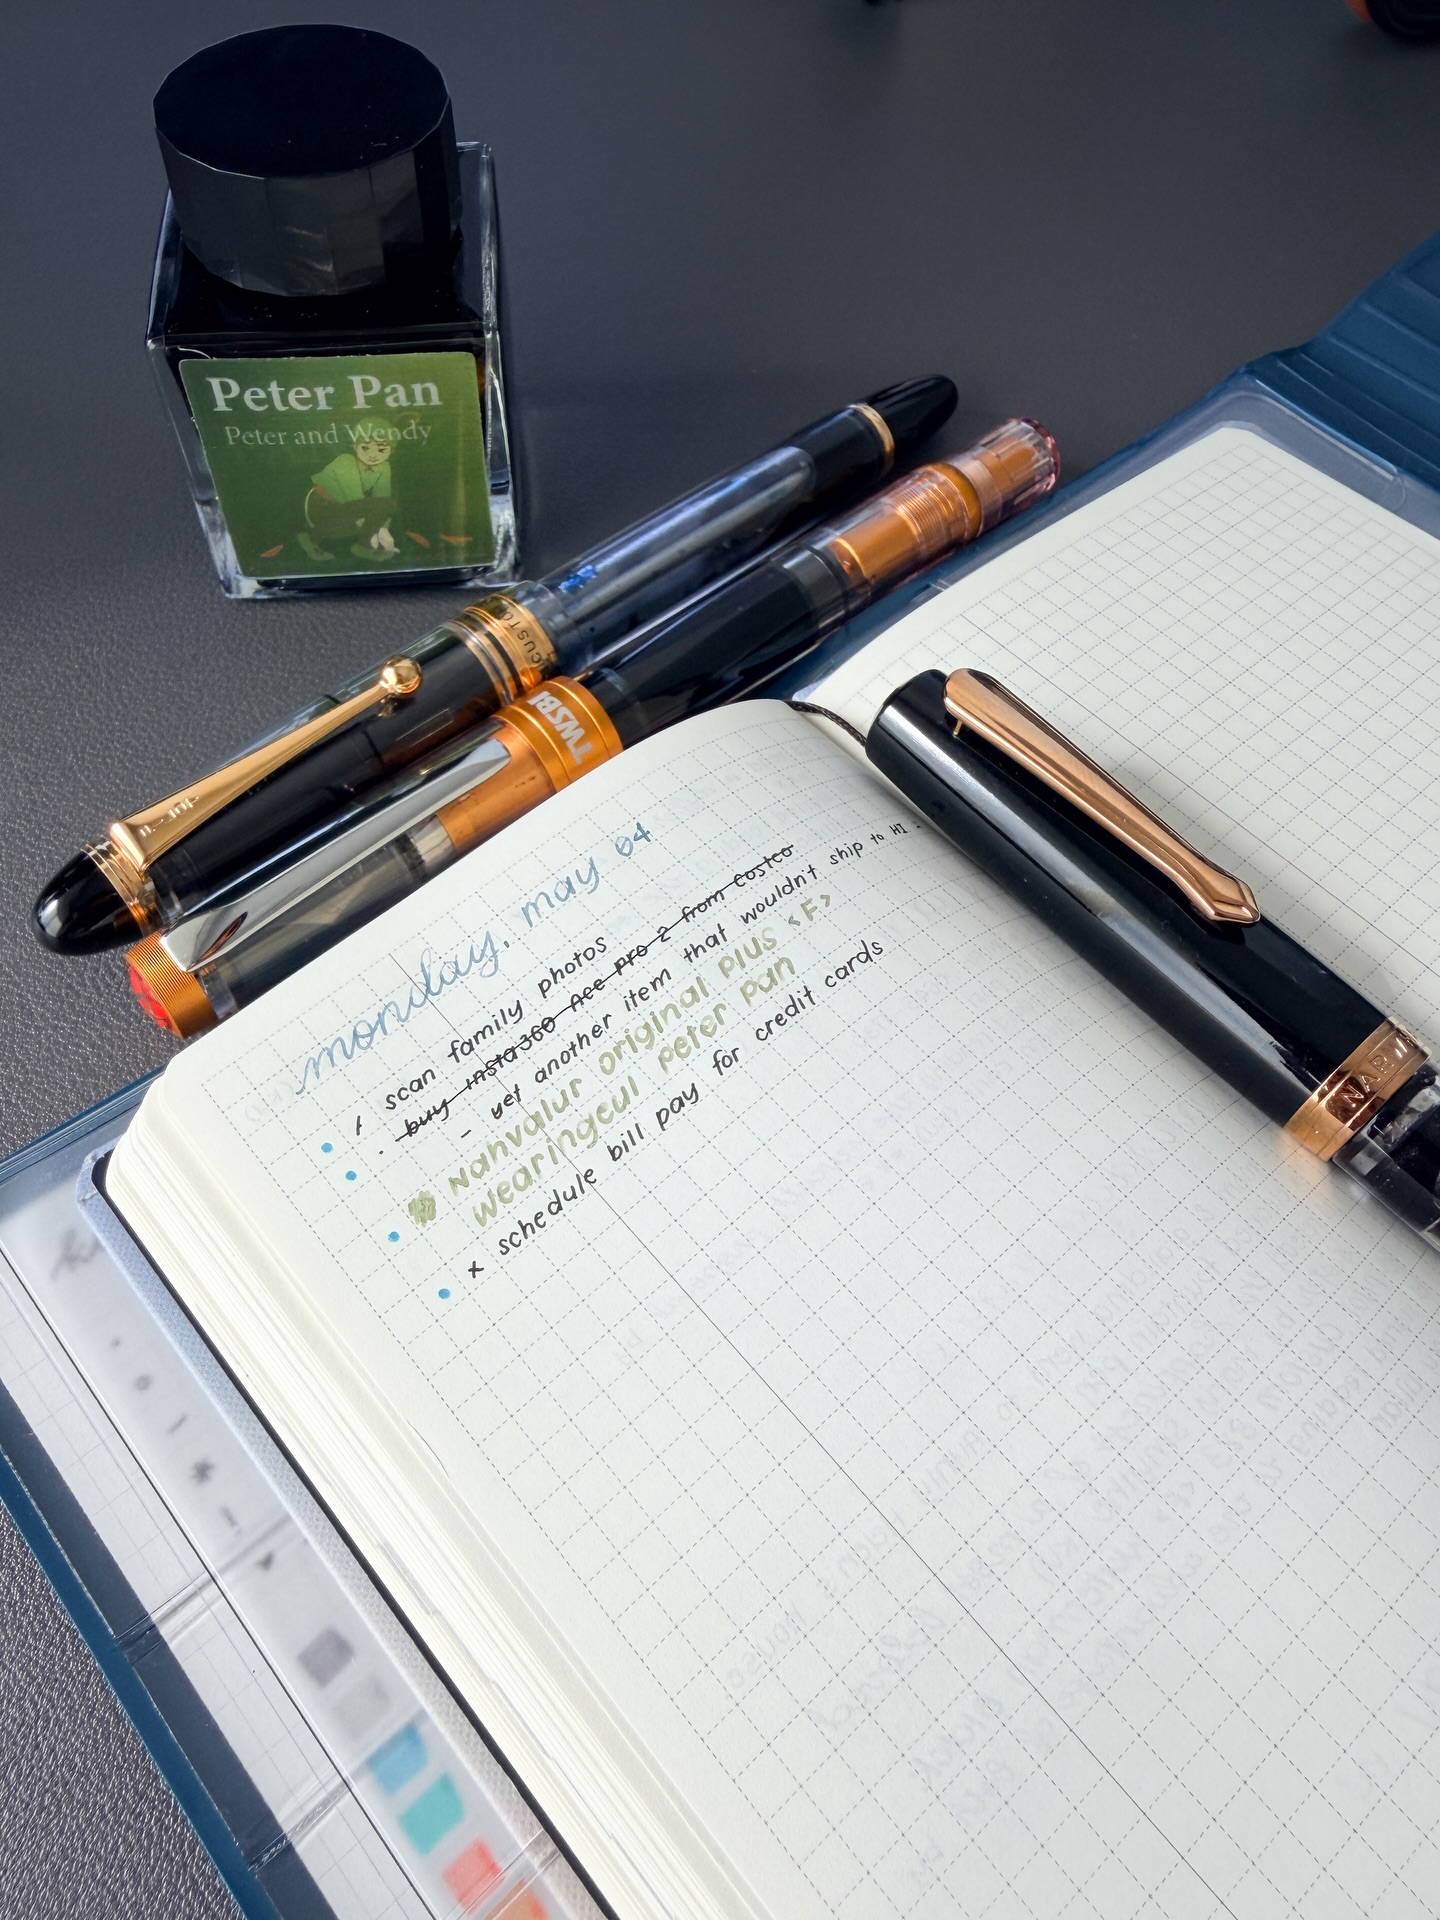 Peter Pan
Peter and Wendy
CUSTO
PILOT
TWSBI
NAHV
monday, may 04
/ scan family photos
· buy insta360 Ace Pro 2 from costco
- yet another item that wouldn't ship to HI.
Nahvalur original plus <F>
Wearingeul peter pan
x schedule bill pay for credit cards